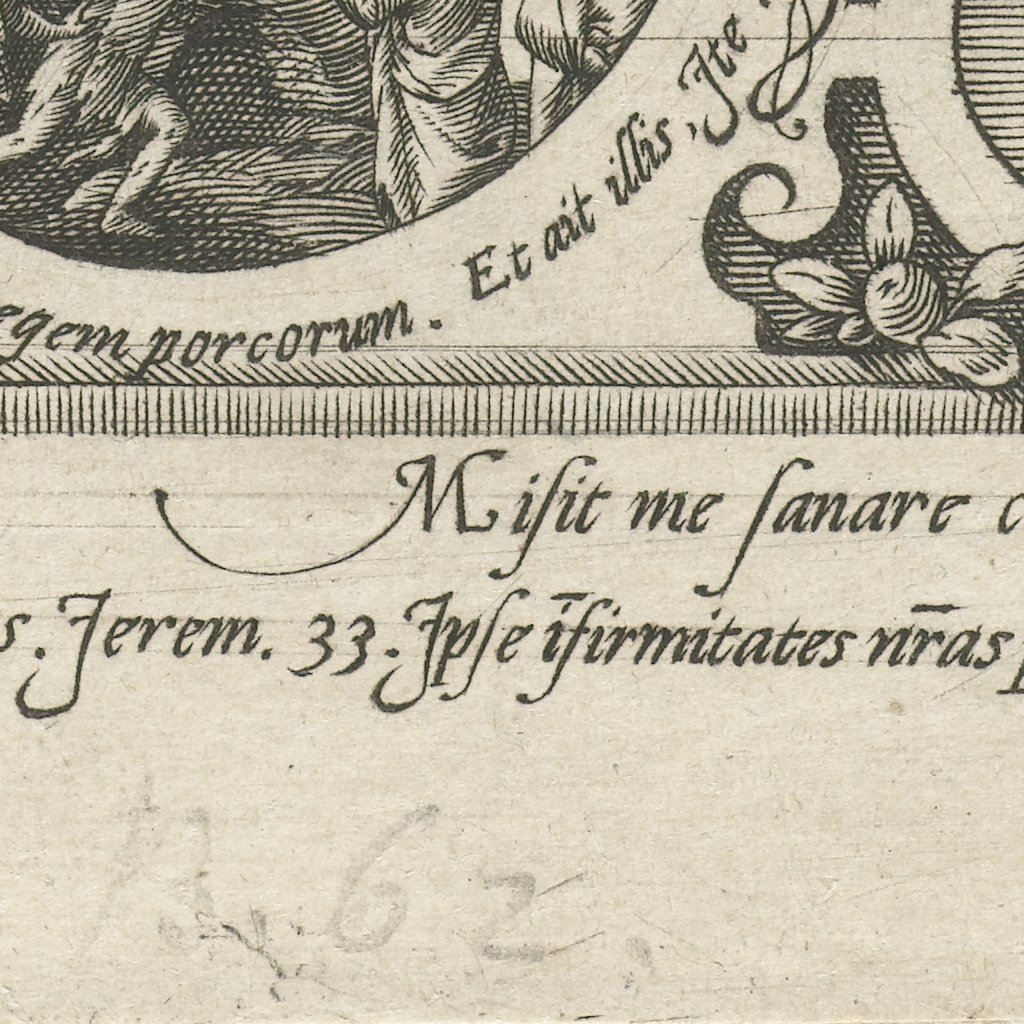 egem porcorum. Et ait illis, Ite
Miſit me ſanare c
s. Jerem. 33. Jpſe īfirmitates nr̄as
62